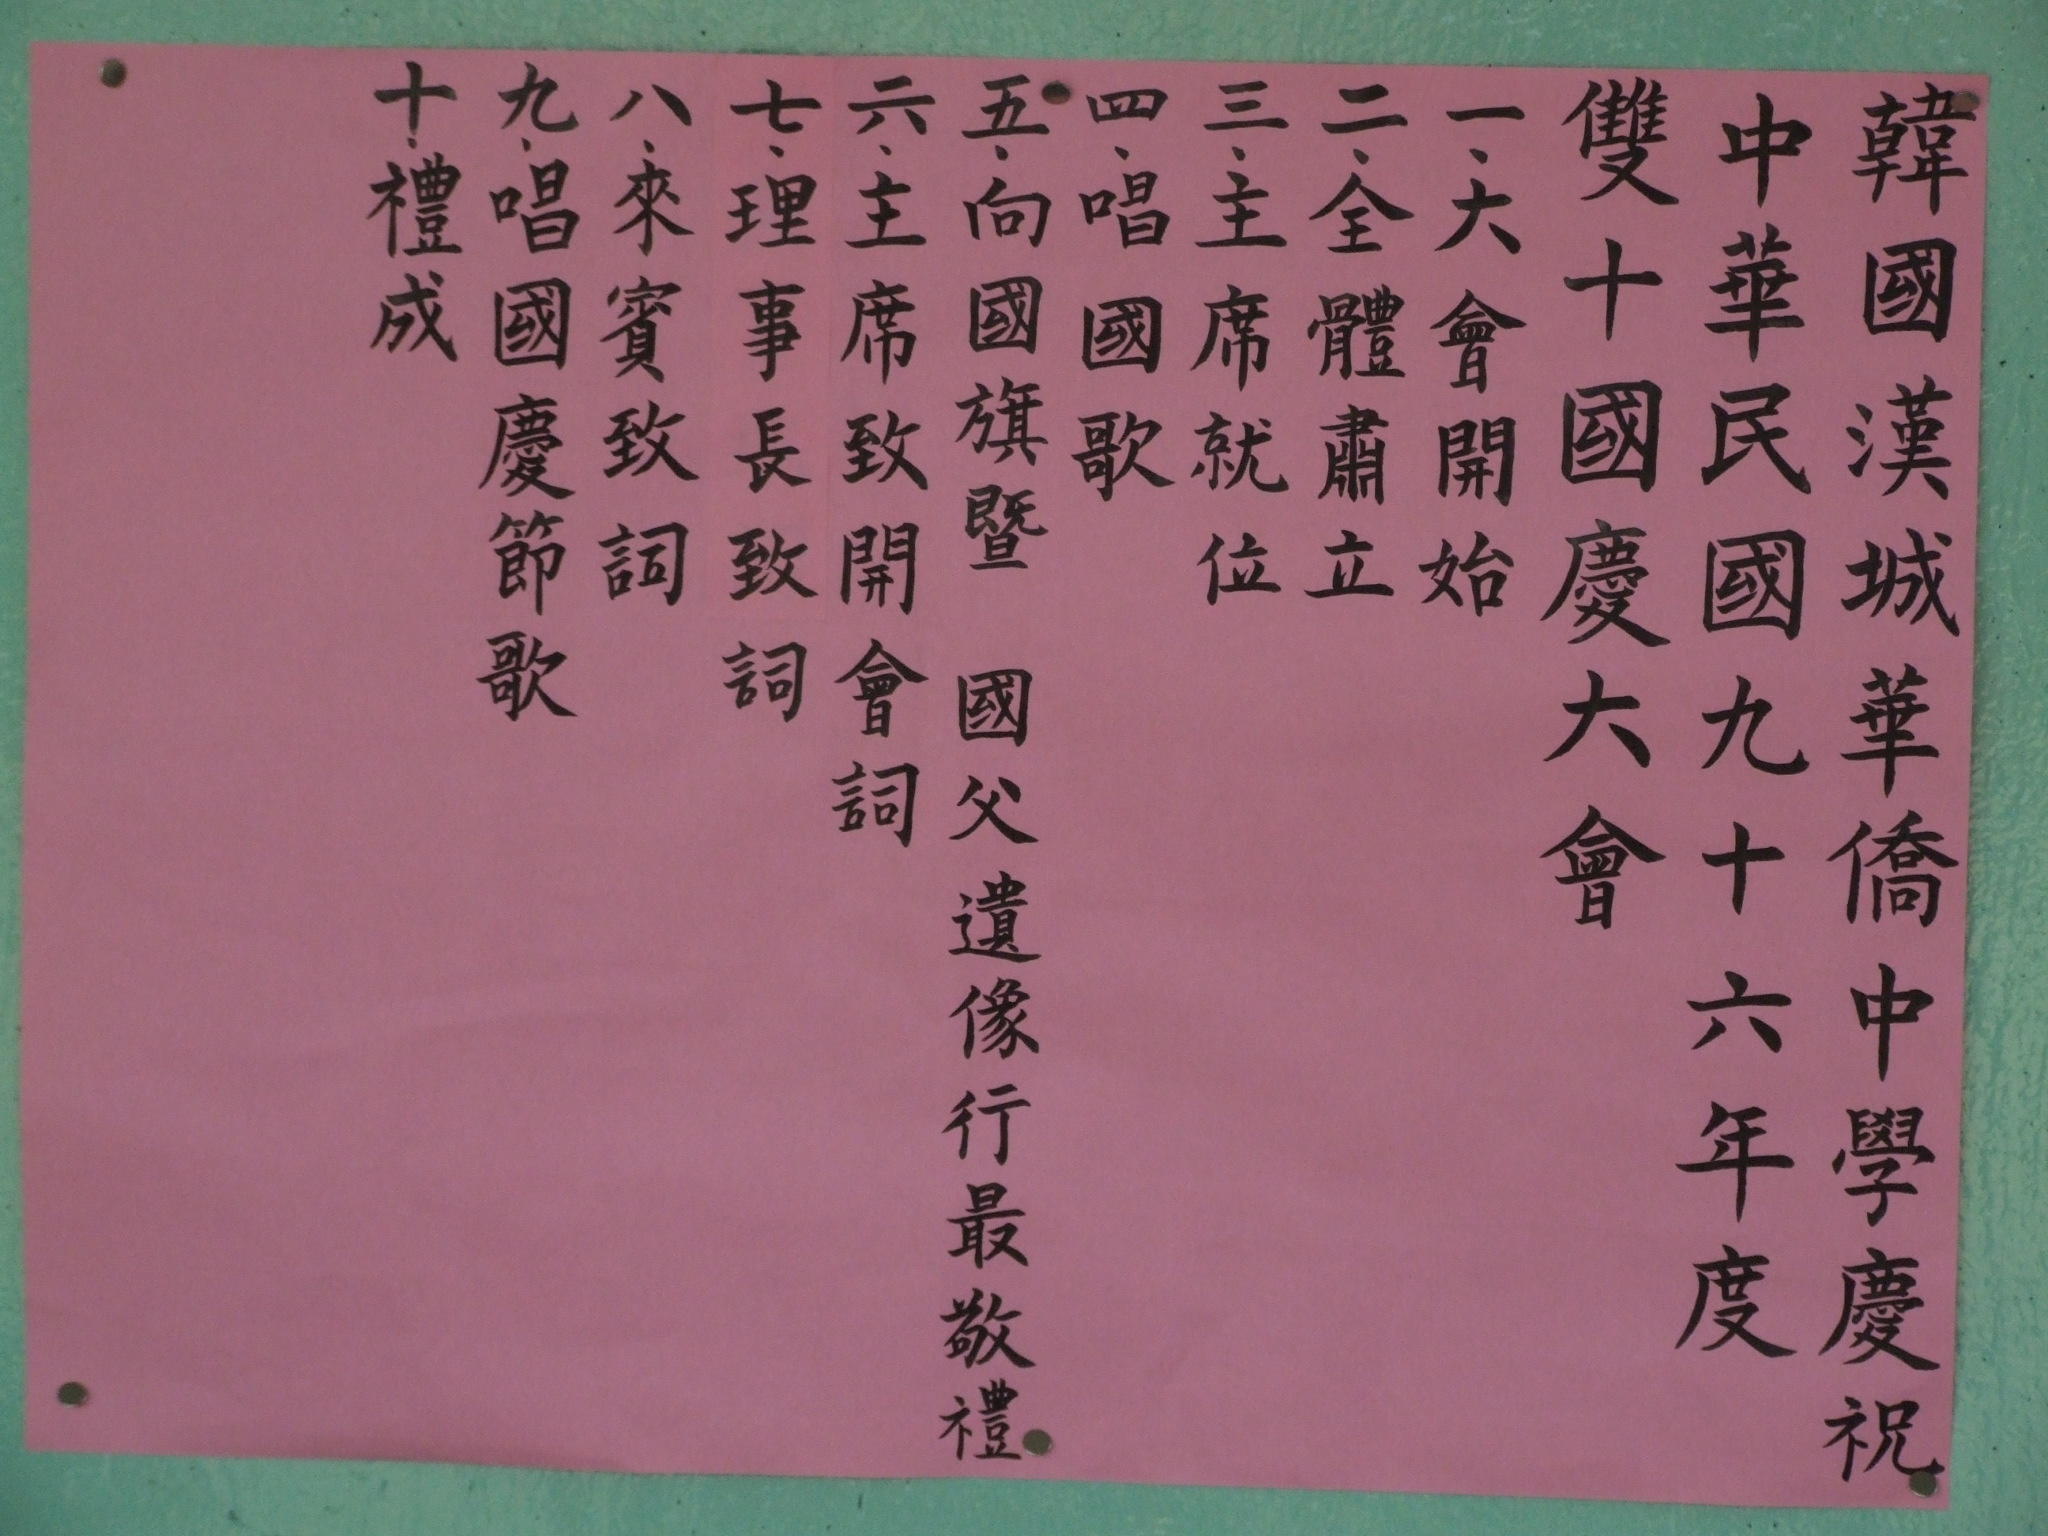 韓國漢城華僑中學慶祝
中華民國九十六年度
雙十國慶大會
一、大會開始
二、全體肅立
三、主席就位
四、唱國歌
五、向國旗暨 國父遺像行最敬禮
六、主席致開會詞
七、理事長致詞
八、來賓致詞
九、唱國慶節歌
十、禮成